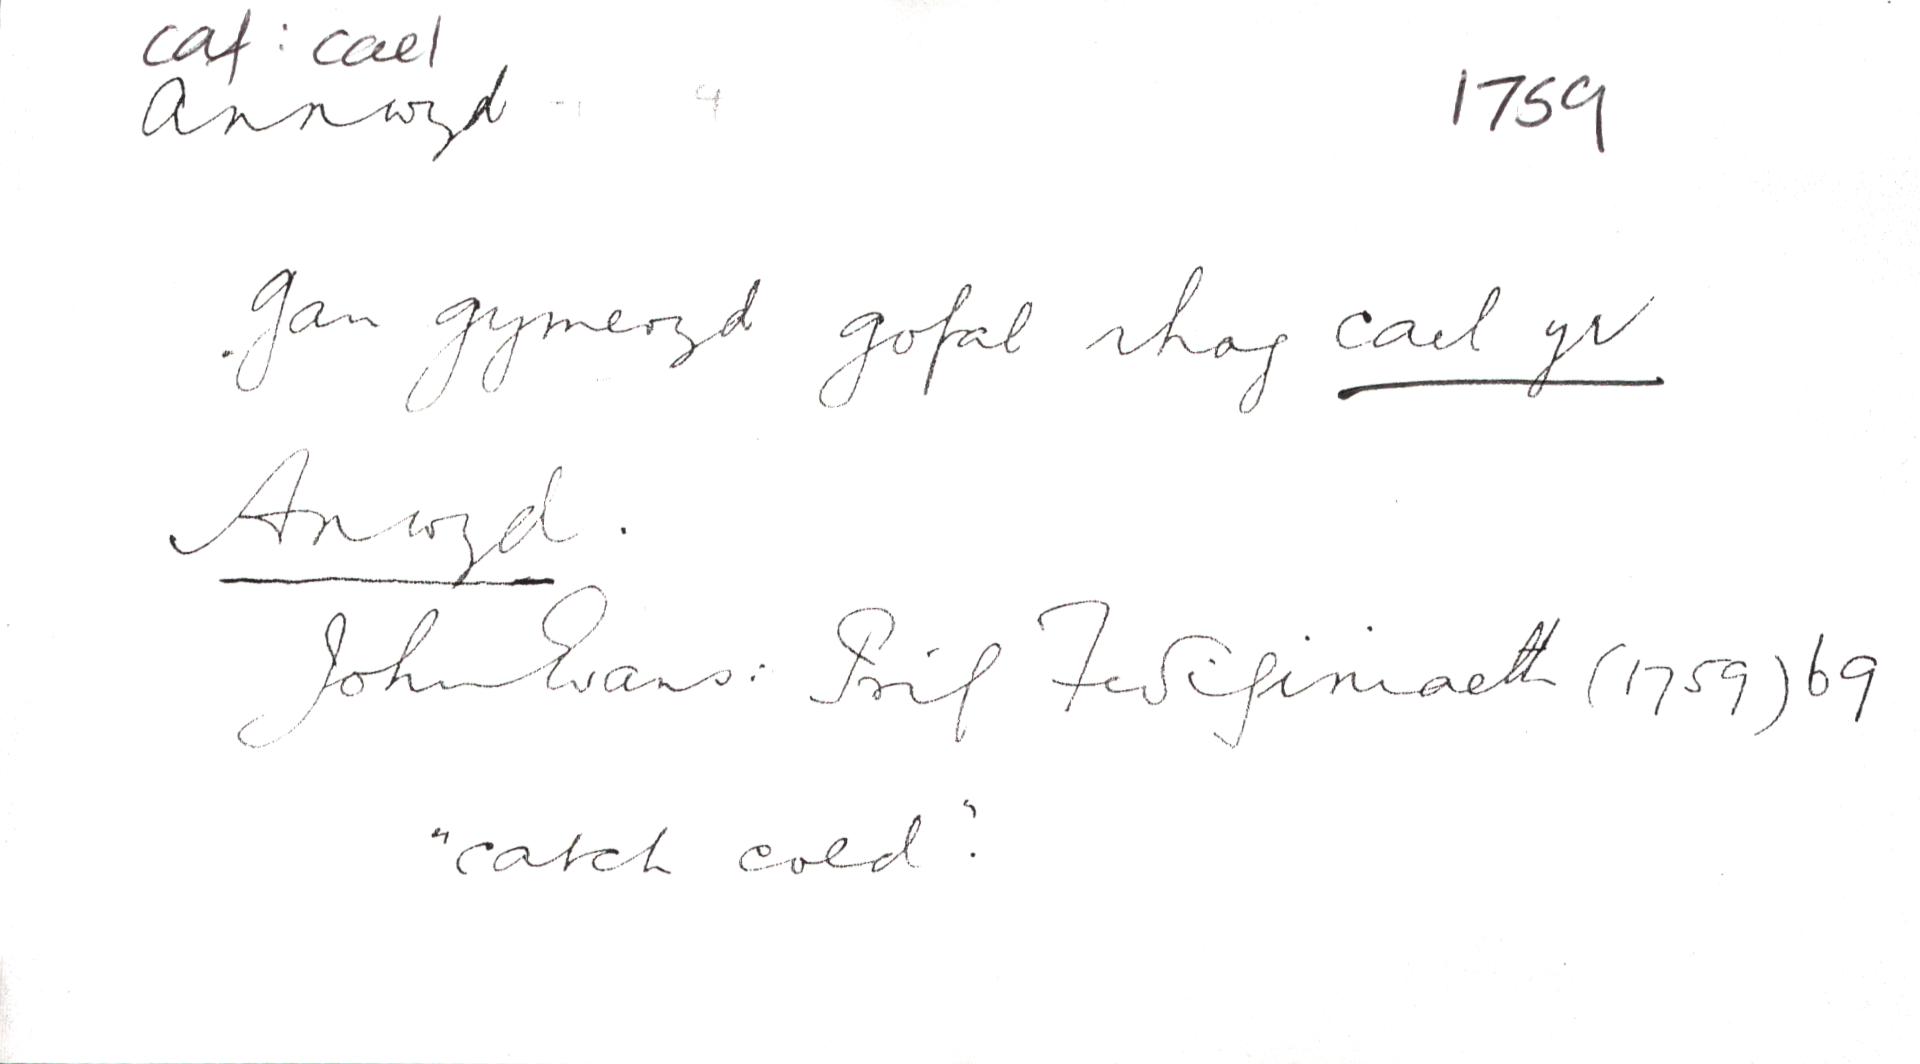 caf: cael
Annwyd
1759
gan gymeryd gofal rhag cael yr
Anwyd.
John Evans: Prif Feðiginiaeth (1759) 69
"catch cold".